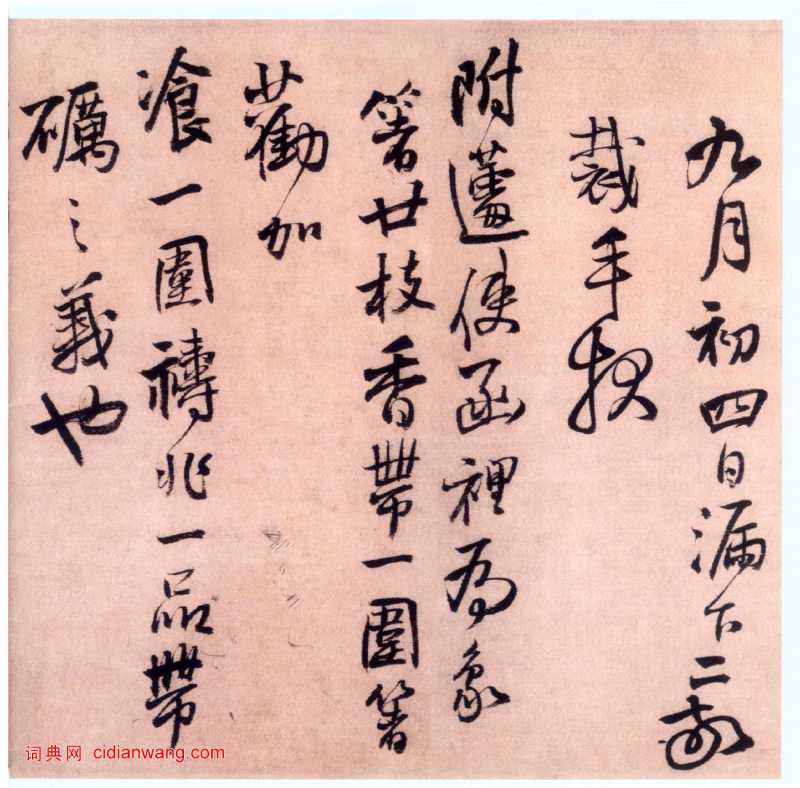 九月初四日漏下二鼓
裁手
附使函裡為象
箸廿枝香帶一圍箸
廿勸加
飡一圍禱兆一品帶
礪之義也
词典网 cidianwang.com